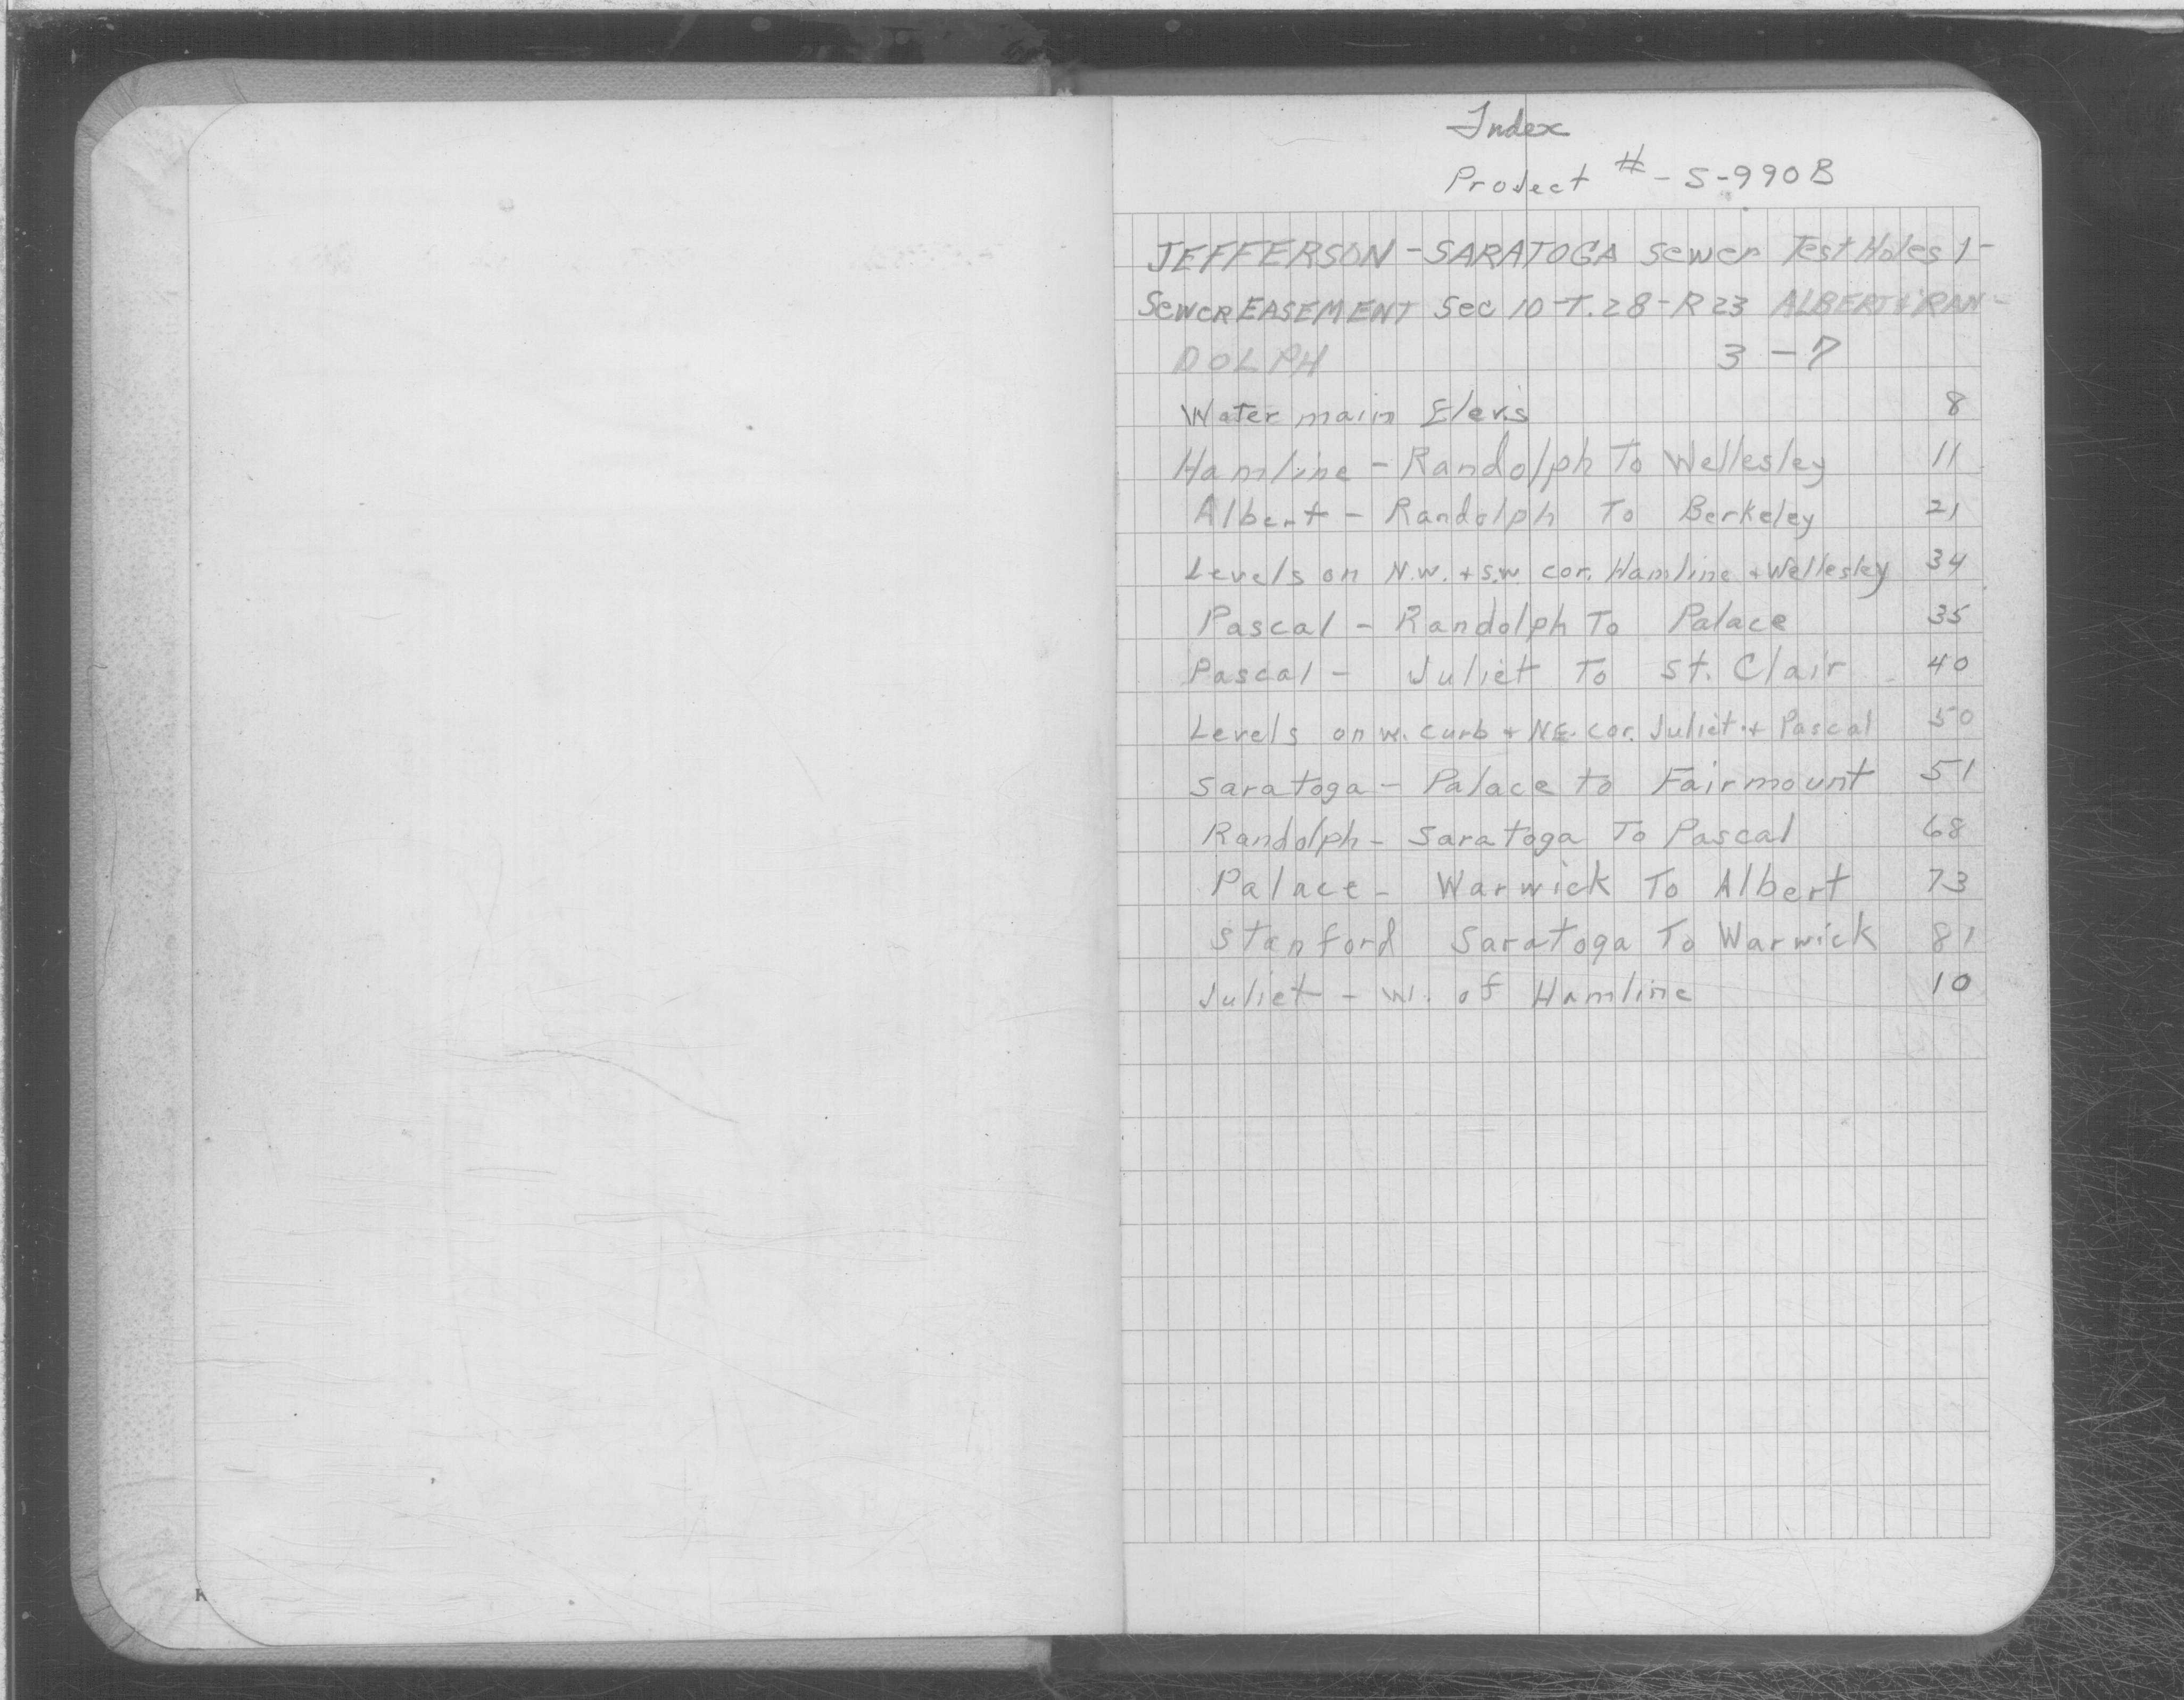 Index
Project # - S-990B
JEFFERSON - SARATOGA Sewer Test Holes 1-
SEWER EASEMENT Sec 10-T.28-R23 ALBERT & RAN-
DOLPH 3-7
Water main Elevs 8
Hamline - Randolph To Wellesley 11
Albert - Randolph To Berkeley 21
Levels on N.W. + S.W. cor. Hamline + Wellesley 34
Pascal - Randolph To Palace 35
Pascal - Juliet To St. Clair 40
Levels on W. curb + NE. cor. Juliet + Pascal 50
Saratoga - Palace to Fairmount 51
Randolph - Saratoga To Pascal 68
Palace - Warwick To Albert 73
Stanford Saratoga To Warwick 81
Juliet - W. of Hamline 10